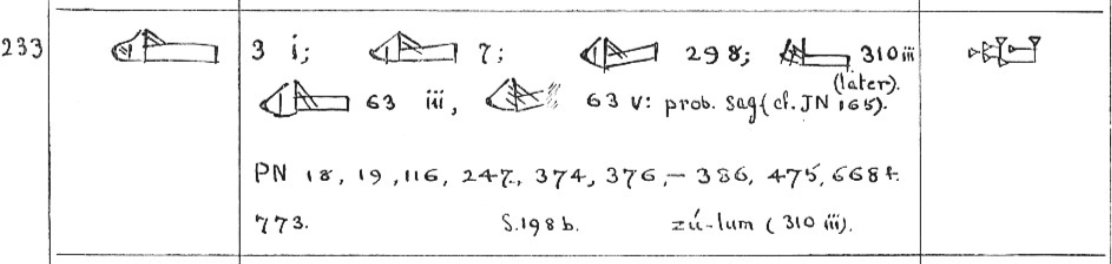 233 3 i; 7; 298; 310 iii
(later).
63 iii, 63 v: prob. sag (cf. JN 165).
PN 18, 19, 116, 247, 374, 376,– 386, 475, 668 f.
773. S.198 b. zú-lum (310 iii).